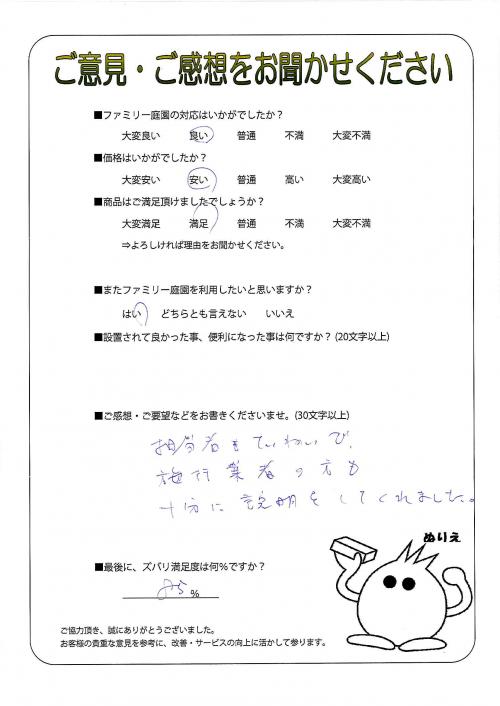 ご意見・ご感想をお聞かせください
■ファミリー庭園の対応はいかがでしたか？
大変良い 良い 普通 不満 大変不満
■価格はいかがでしたか？
大変安い 安い 普通 高い 大変高い
■商品はご満足頂けましたでしょうか？
大変満足 満足 普通 不満 大変不満
⇒よろしければ理由をお聞かせください。
■またファミリー庭園を利用したいと思いますか？
はい どちらとも言えない いいえ
■設置されて良かった事、便利になった事は何ですか？(20文字以上)
■ご感想・ご要望などをお書きくださいませ。(30文字以上)
担当者もていねいで、
施行業者の方も
十分に説明をしてくれました。
ぬりえ
■最後に、ズバリ満足度は何％ですか？
%
ご協力頂き、誠にありがとうございました。
お客様の貴重な意見を参考に、改善・サービスの向上に活かして参ります。